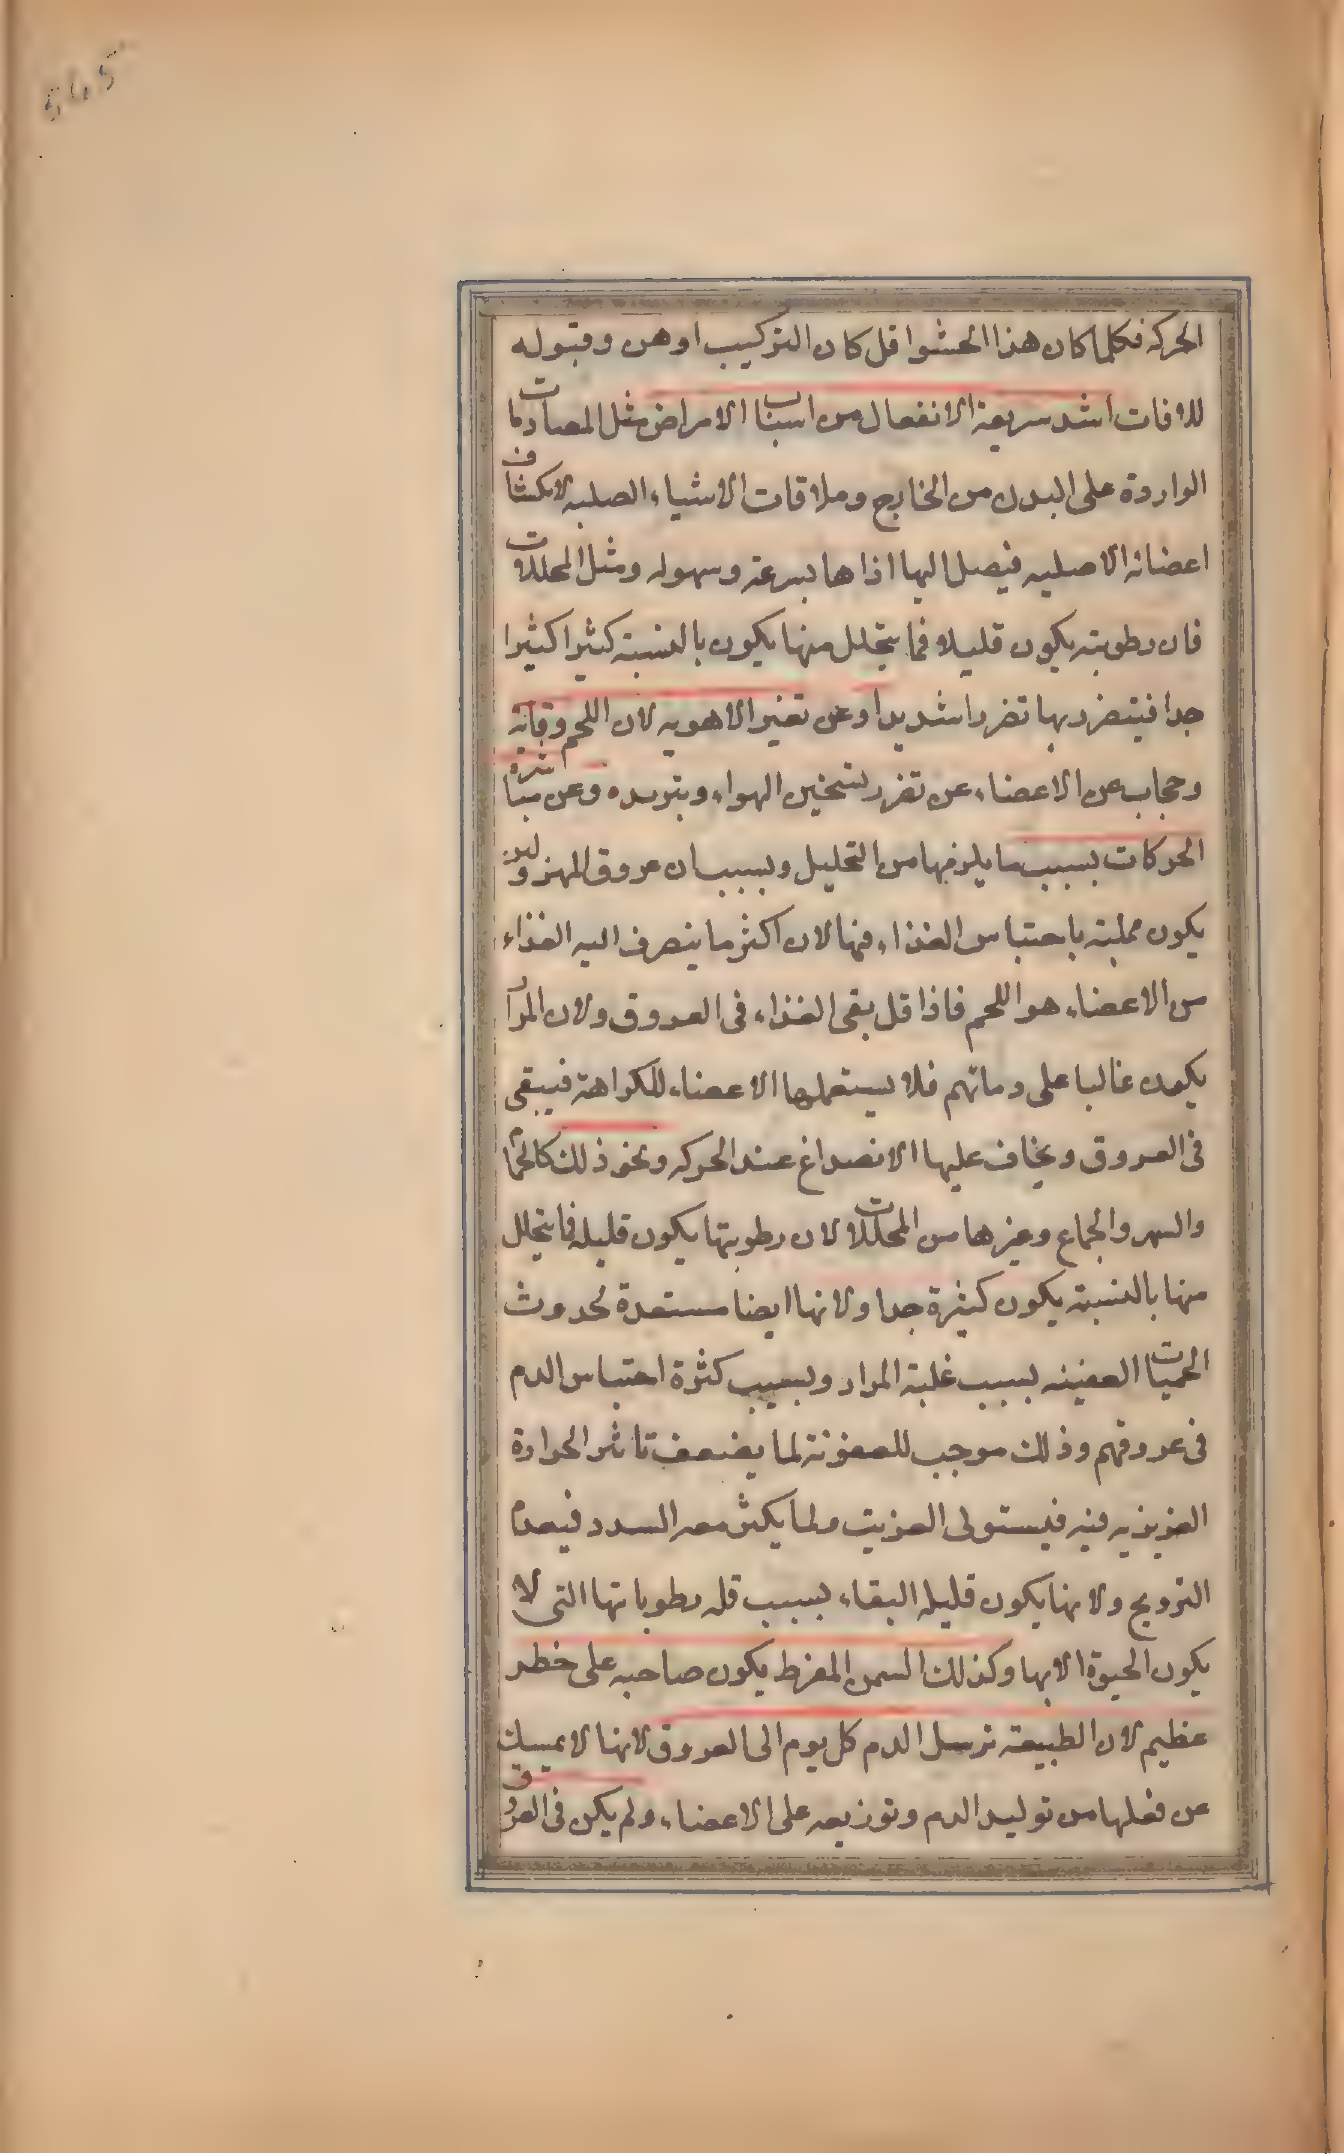 545
الحركه فكلما كان هذا الحشوا قل كان التركيب اوهن وقبوله
للافات اشد سريعة الانفعال من اسباب الامراض مثل المصادمات
الواردة على البدن من الخارج وملاقات الاشياء الصلبه لانكشاف
اعضائه الاصليه فيصل اليها اذاها بسرعة وسهوله ومثل المحللات
فان رطوبته يكون قليلا فما يتحلل منها يكون بالنسبة كثيرا كثيرا
جدا فيتضرر بها تضررا شديدا وعن تغير الاهويه لان اللحم وقاية
وحجاب عن الاعضاء عن تضرر تسخين الهواء وبتريده وعن مباشرة
الحركات بسبب ما يلزمها من التحليل وبسبب ان عروق المهزولين
يكون ممليته باحتباس الغذاء فيها لان اكثر ما ينصرف اليه الغذاء
من الاعضاء هو اللحم فاذا قل بقى الغذاء فى العروق ولان المرار
يكون غالبا على دمائهم فلا يستعملها الاعضاء للكراهة فيبقى
فى العروق ويخاف عليها الانصداع عند الحركه ونحو ذلك كالحمام
والسهر والجماع وغيرها من المحللات لان رطوبتها يكون قليله فما يتحلل
منها بالنسبة يكون كثيرة جدا ولانها ايضا مستعدة لحدوث
الحميات العفينه بسبب غلبة المرار وبسبب كثرة احتباس الدم
فى عروقهم وذلك موجب للعفونة لما يضعف تاثير الحرارة
الغريزيه فيه فيستولى الغريبة ولما يكثر معه السدد فيعدم
الترويح ولانها يكون قليله البقاء بسبب قله رطوباتها التى لا
يكون الحيوة الابها وكذلك السمن المفرط يكون صاحبه على خطر
عظيم لان الطبيعة ترسل الدم كل يوم الى العروق لانها لا يمسك
عن فعلها من توليد الدم وتوزيعه على الاعضاء ولم يكن فى العروق